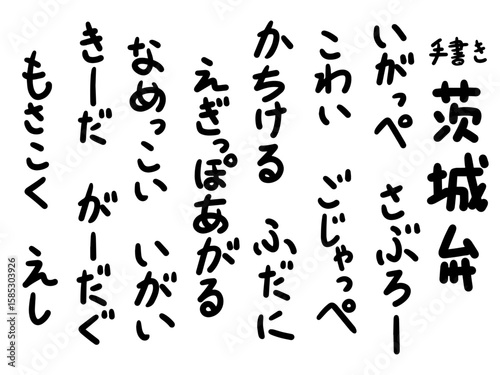 手書き
茨城弁
いがっぺ さぶろー
こわい ごじゃっぺ
かちける ふだに
えぎっぽあがる
なめっこい いがい
きーだ がーだぐ
もさこく えし
Adobe Stock | #1585303926